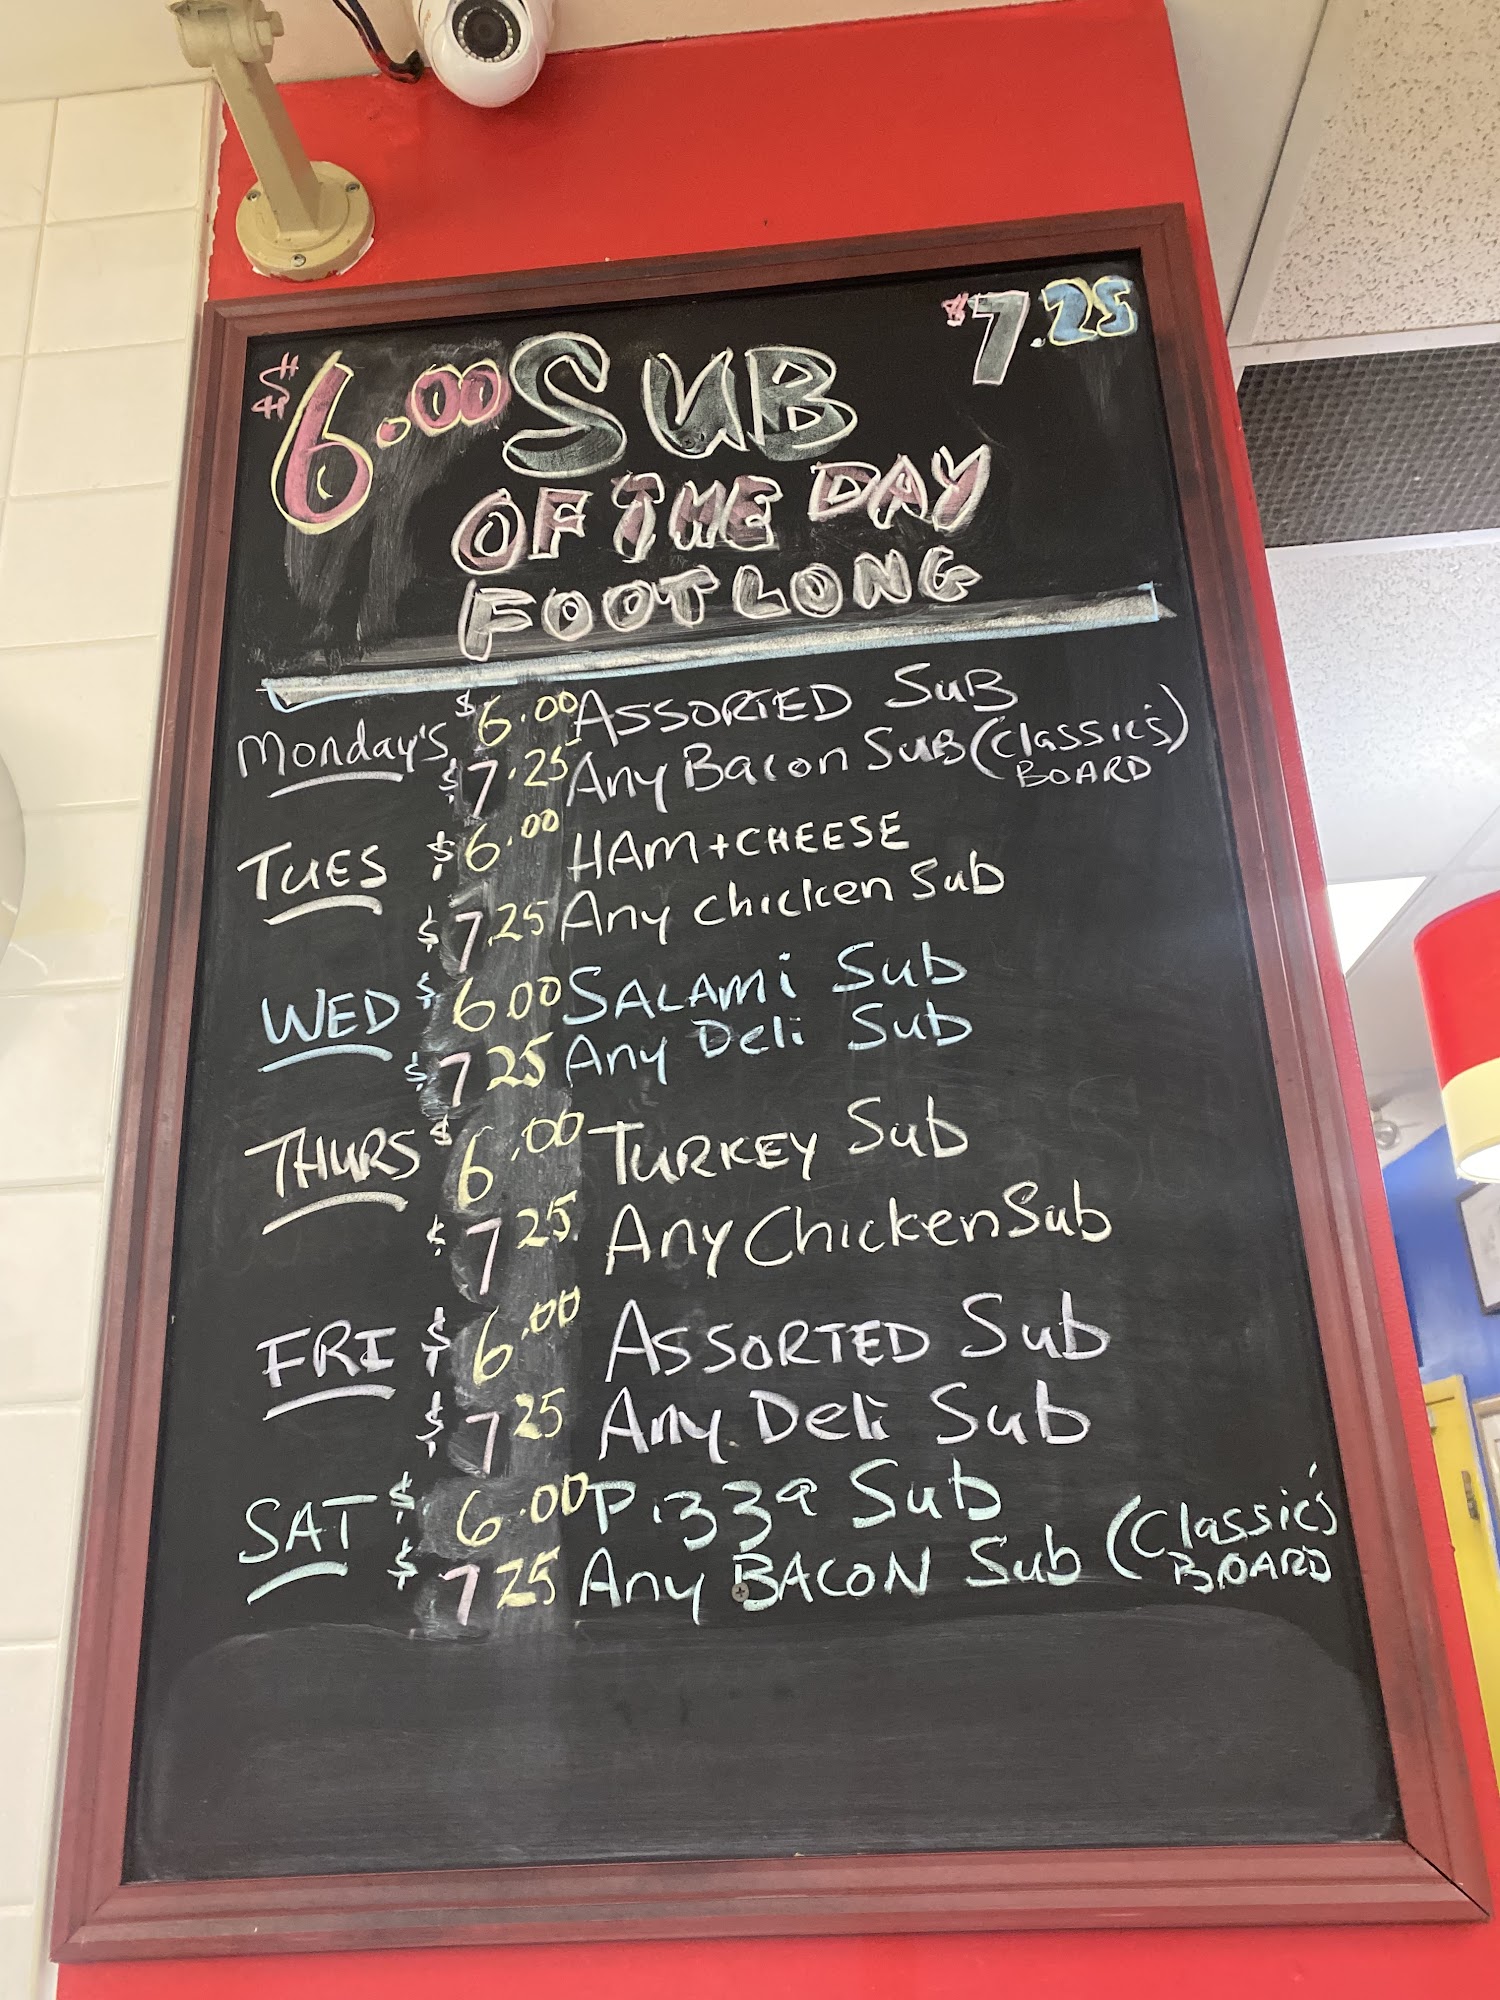 $6.00 SUB $7.25
OF THE DAY
FOOTLONG
Monday's $6.00 ASSORTED SUB
$7.25 Any Bacon Sub (Classic's)
BOARD
TUES $6.00 HAM+CHEESE
$7.25 Any chicken Sub
WED $6.00 SALAMi Sub
$7.25 Any Deli Sub
THURS $6.00 TURKEY Sub
$7.25 Any Chicken Sub
FRI $6.00 ASSORTED Sub
$7.25 Any Deli Sub
SAT $6.00 Pizza Sub
$7.25 Any BACON Sub (Classic's
BOARD